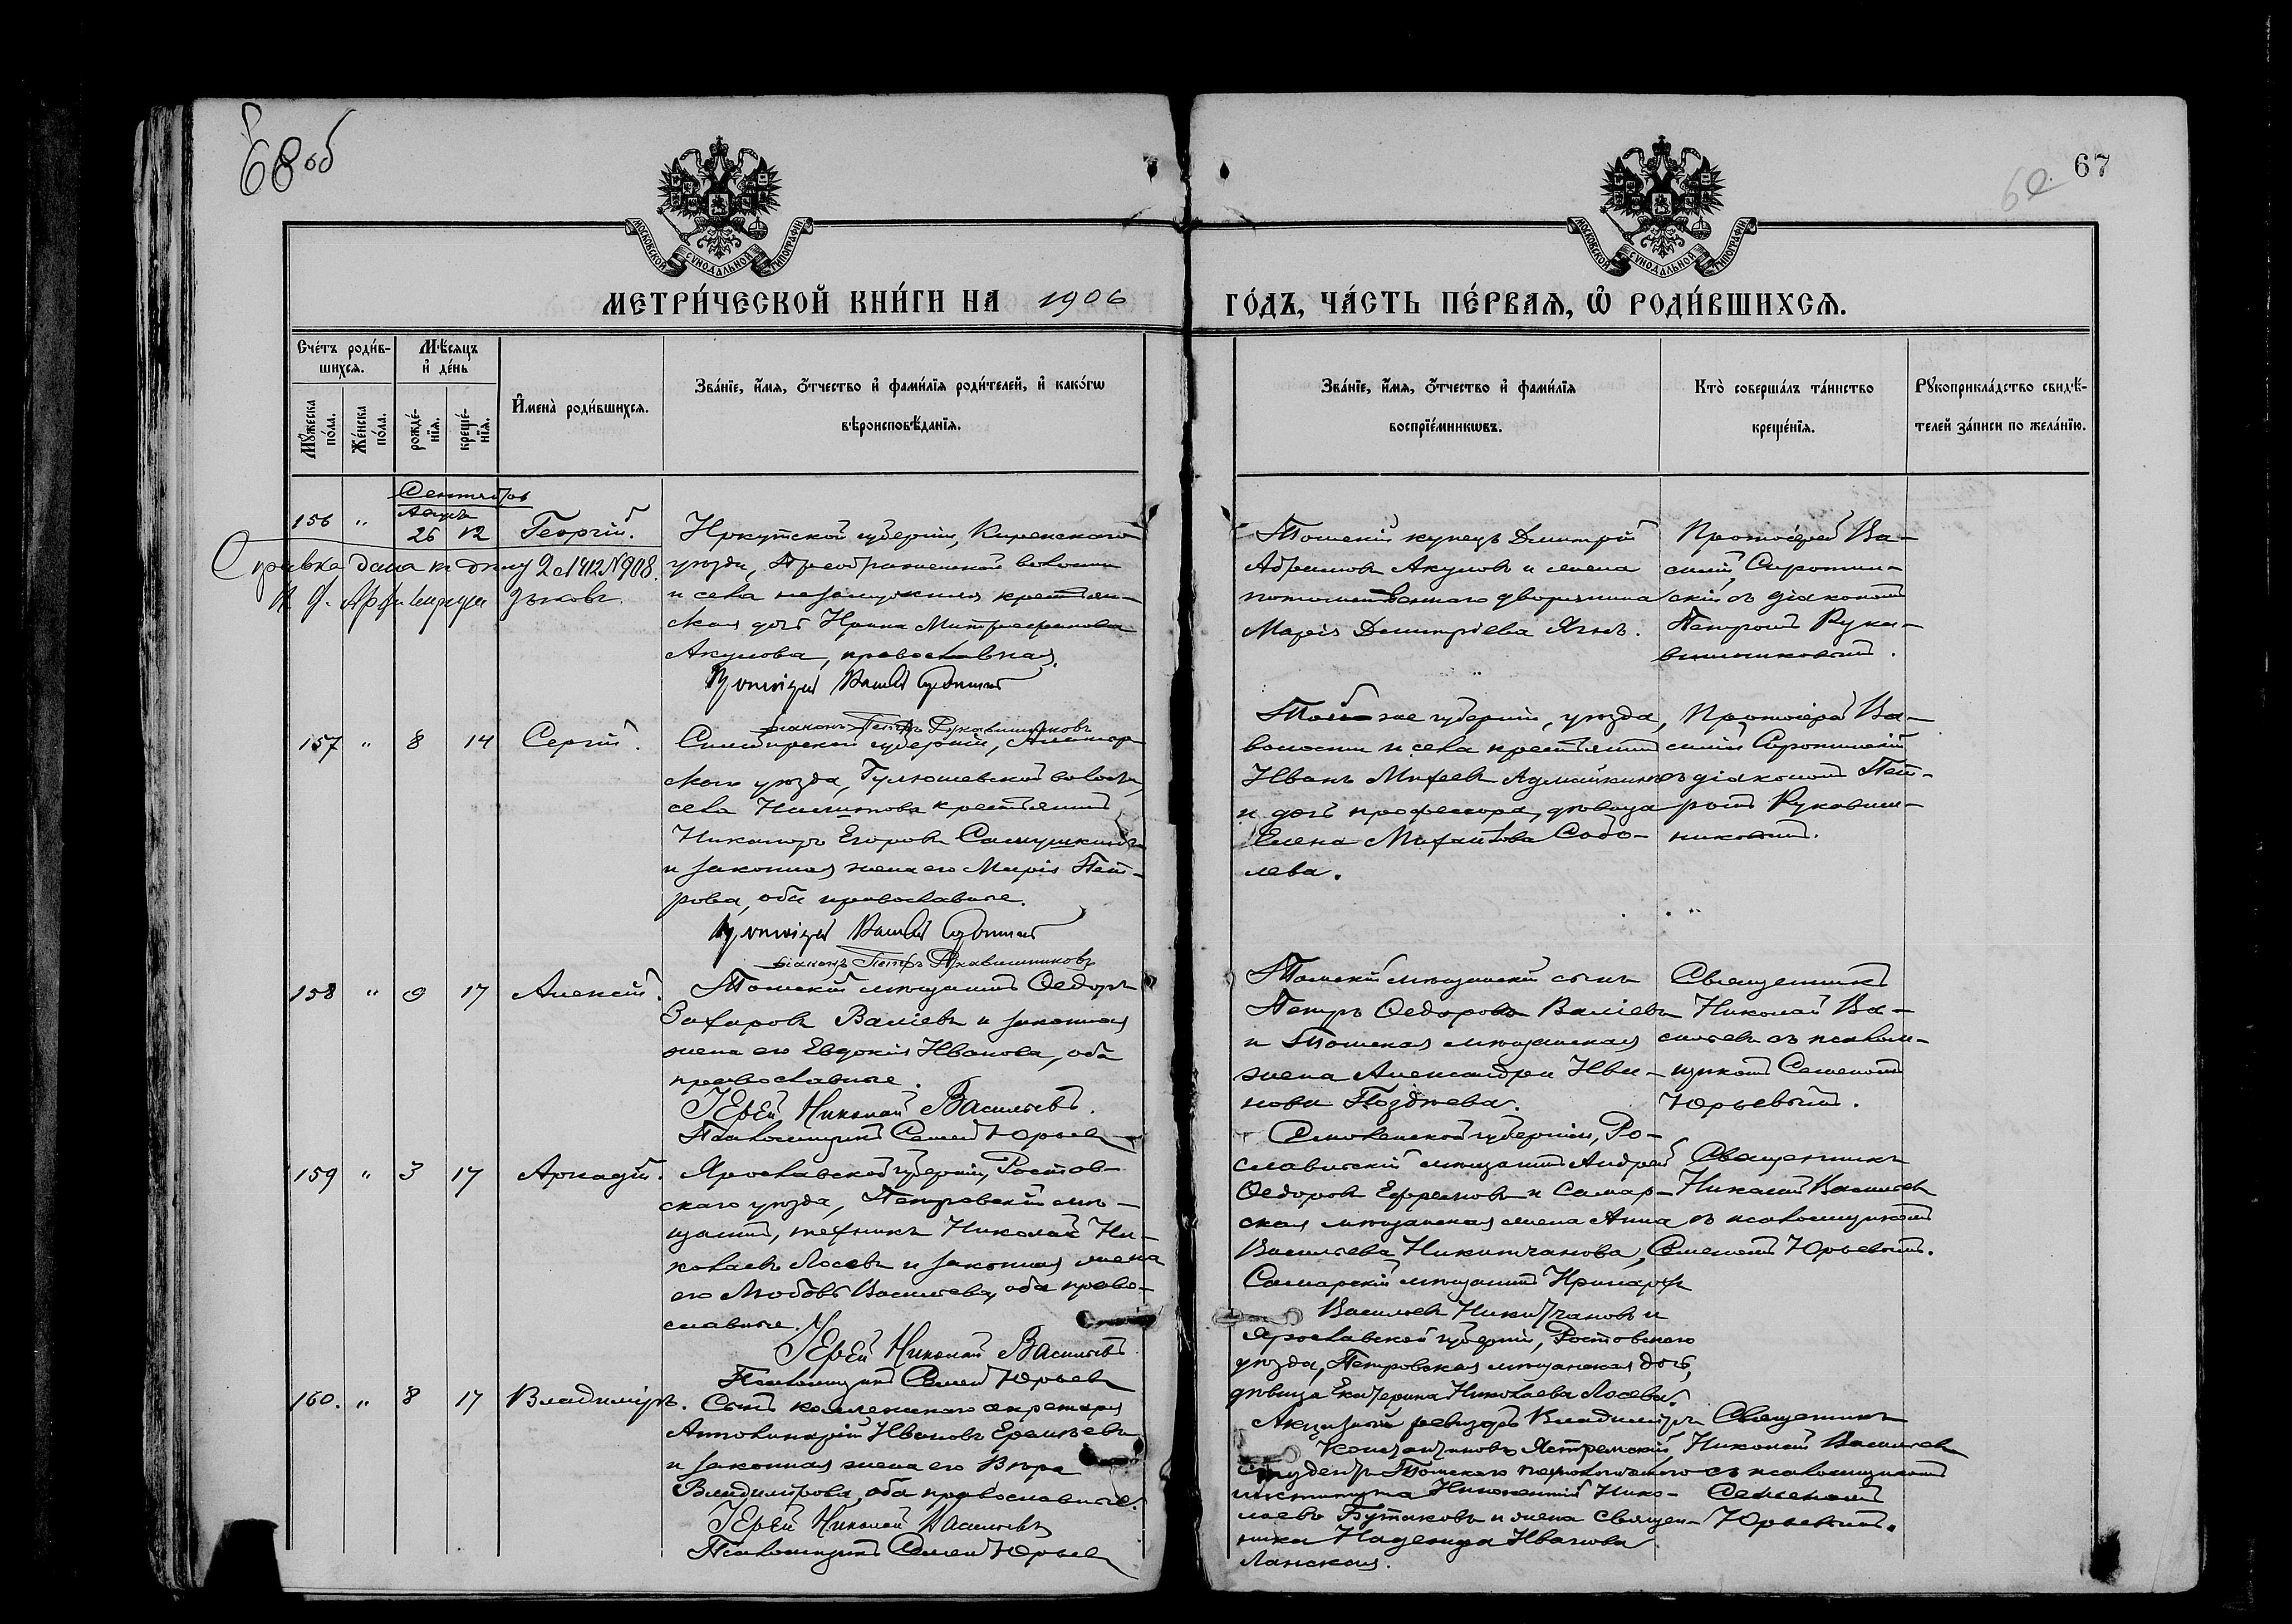 68 об
67
МОСКОВСКОЙ СѴНОДАЛЬНОЙ ТИПОГРАФІИ
МОСКОВСКОЙ СѴНОДАЛЬНОЙ ТИПОГРАФІИ
МЕТРИ́ЧЕСКОЙ КНИ́ГИ НА 1906
ГО́ДЪ, ЧА́СТЬ ПЕ́РВАЯ, Ѽ РОДИ́ВШИХСЯ.
Сче́тъ роди́в-
шихся.
Мꙋ́жеска
по́ла.
Же́нска
по́ла.
Мѣ́сяцъ
и҆ де́нь
рожде́-
нїя.
креще́-
нїя.
И҆мена̀ роди́вшихся.
Зва́нїе, и҆́мя, ѻ҆́тчество и҆ фами́лїя роди́телей, и҆ како́гѡ
вѣроисповѣ́данїя.
Зва́нїе, и҆́мя, ѻ҆́тчество и҆ фами́лїя
воспрїе́мникѡвъ.
Кто̀ соверша́лъ та́инство
креще́нїя.
Рꙋкоприкла́дство свидѣ́-
телей за́писи по жела́нїю.
Сентябрь
Авгус
156 " 26 12 Георгій.
Справка дана къ дѣлу 2 с 1912 № 908.
Иркутской губерніи, Киренскаго
уѣзда, Преображенской волости
и села незамужняя крестьян-
ская дочь Ирина Митрофанова
Акулова, православная.
Протоіерей Василій Сиротинскій
діаконъ Петръ Рукавишниковъ
Томскій купецъ Димитрій
Абрамовъ Акуловъ и жена
потомственнаго дворянина
Марія Димитріева Янъ.
Протоіерей Ва-
силій Сиротин-
скій съ діакономъ
Петромъ Рука-
вишниковымъ.
157 " 8 14 Сергій.
Симбирской губерніи, Алатыр
скаго уѣзда, Гулюшевской волости,
села крестьянинъ
Никаноръ Егоровъ Самушкинъ
и законная жена его Марія Пет-
рова, оба православные.
Протоіерей Василій Сиротинскій
діаконъ Петръ Рукавишниковъ
Той же губерніи, уѣзда,
волости и села крестьянинъ
Иванъ Михеевъ Адмайкинъ
и дочь профессора, дѣвица
Елена Михаилова Собо-
лева.
Протоіерей Ва-
силій Сиротинскій
съ діакономъ Пет-
ромъ Рукавиш-
никовымъ.
158 " 9 17 Алексій.
Томскій мѣщанинъ Ѳедоръ
Захаровъ Валіевъ и законная
жена его Евдокія Иванова, оба
православные.
Іерей Николай Васильевъ.
Псаломщикъ Семенъ Юрьевъ
Томскій мѣщанскій сынъ
Петръ Ѳедоровъ Валіевъ
и Томская мѣщанская
жена Александра Ива-
нова Позднева.
Священникъ
Николай Ва-
сильевъ съ псалом-
щикомъ Семеномъ
Юрьевымъ.
159 " 3 17 Аркадій.
Ярославской губерніи, Ростов-
скаго уѣзда, Петровскій мѣ-
щанинъ, техникъ Николай Ни-
колаевъ Лосевъ и законная жена
его Любовь Васильева, оба право-
славные.
Іерей Николай Васильевъ
Псаломщикъ Семенъ Юрьевъ
Смоленской губерніи, Ро-
славльскій мѣщанинъ Андрей
Ѳедоровъ Ефремовъ и Самар-
ская мѣщанская жена Анна
Васильева Никитчанова,
Самарскій мѣщанинъ Иринархъ
Васильевъ Никитчановъ и
Ярославской губерніи, Ростовскаго
уѣзда, Петровская мѣщанская дочь,
дѣвица Екатерина Николаева Лосева.
Священникъ
Николай Васильевъ
съ псаломщикомъ
Семеномъ Юрьевымъ.
160. " 8 17 Владиміръ.
Сынъ коллежскаго секретаря
Апполинарій Ивановъ Еремѣевъ
и законная жена его Вѣра
Владимірова, оба православные.
Іерей Николай Васильевъ
Псаломщикъ Семенъ Юрьевъ
Акцизный ревизоръ Владиміръ
Константиновъ Ястремскій
студентъ Томскаго технологическаго
института Иннокентій Нико-
лаевъ Бутаковъ и жена священ-
ника Надежда Иванова
Ланская.
Священникъ
Николай Васильевъ
съ псаломщикомъ
Семеномъ
Юрьевымъ.